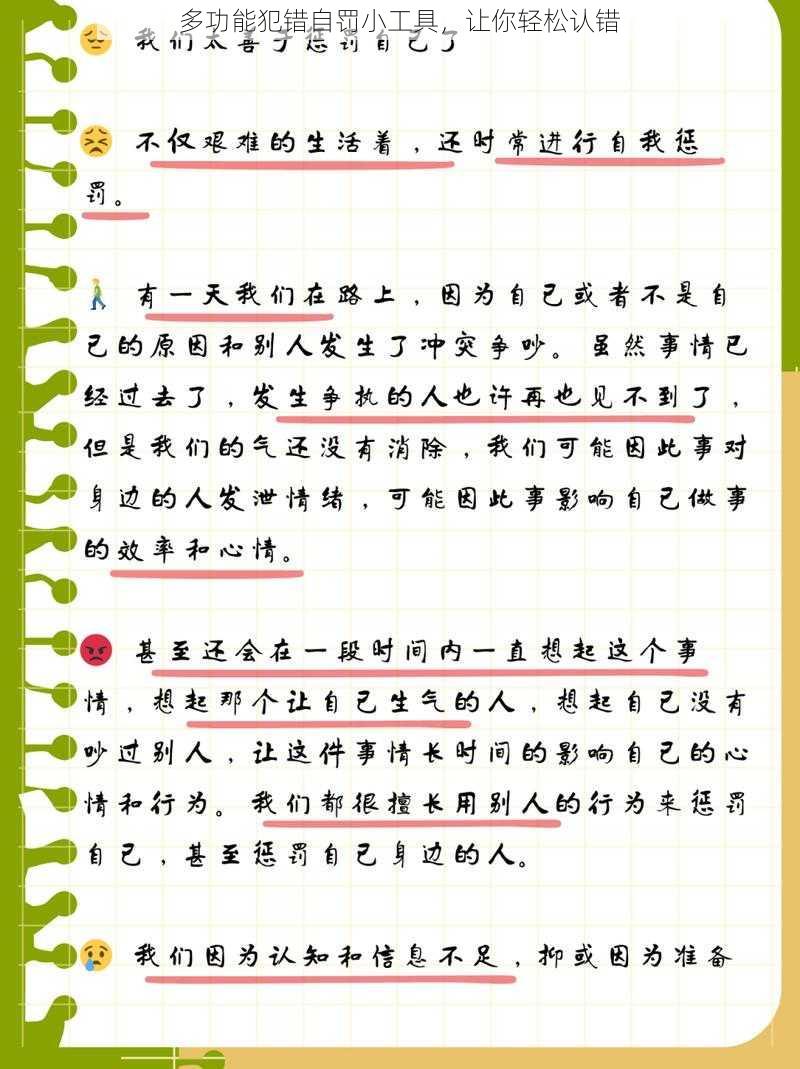 多功能犯错自罚小工具，让你轻松认错
我们太善于惩罚自己了
不仅艰难的生活着，还时常进行自我惩
罚。
有一天我们在路上，因为自己或者不是自
己的原因和别人发生了冲突争吵。虽然事情已
经过去了，发生争执的人也许再也见不到了，
但是我们的气还没有消除，我们可能因此事对
身边的人发泄情绪，可能因此事影响自己做事
的效率和心情。
甚至还会在一段时间内一直想起这个事
情，想起那个让自己生气的人，想起自己没有
吵过别人，让这件事情长时间的影响自己的心
情和行为。我们都很擅长用别人的行为来惩罚
自己，甚至惩罚自己身边的人。
我们因为认知和信息不足，抑或因为准备